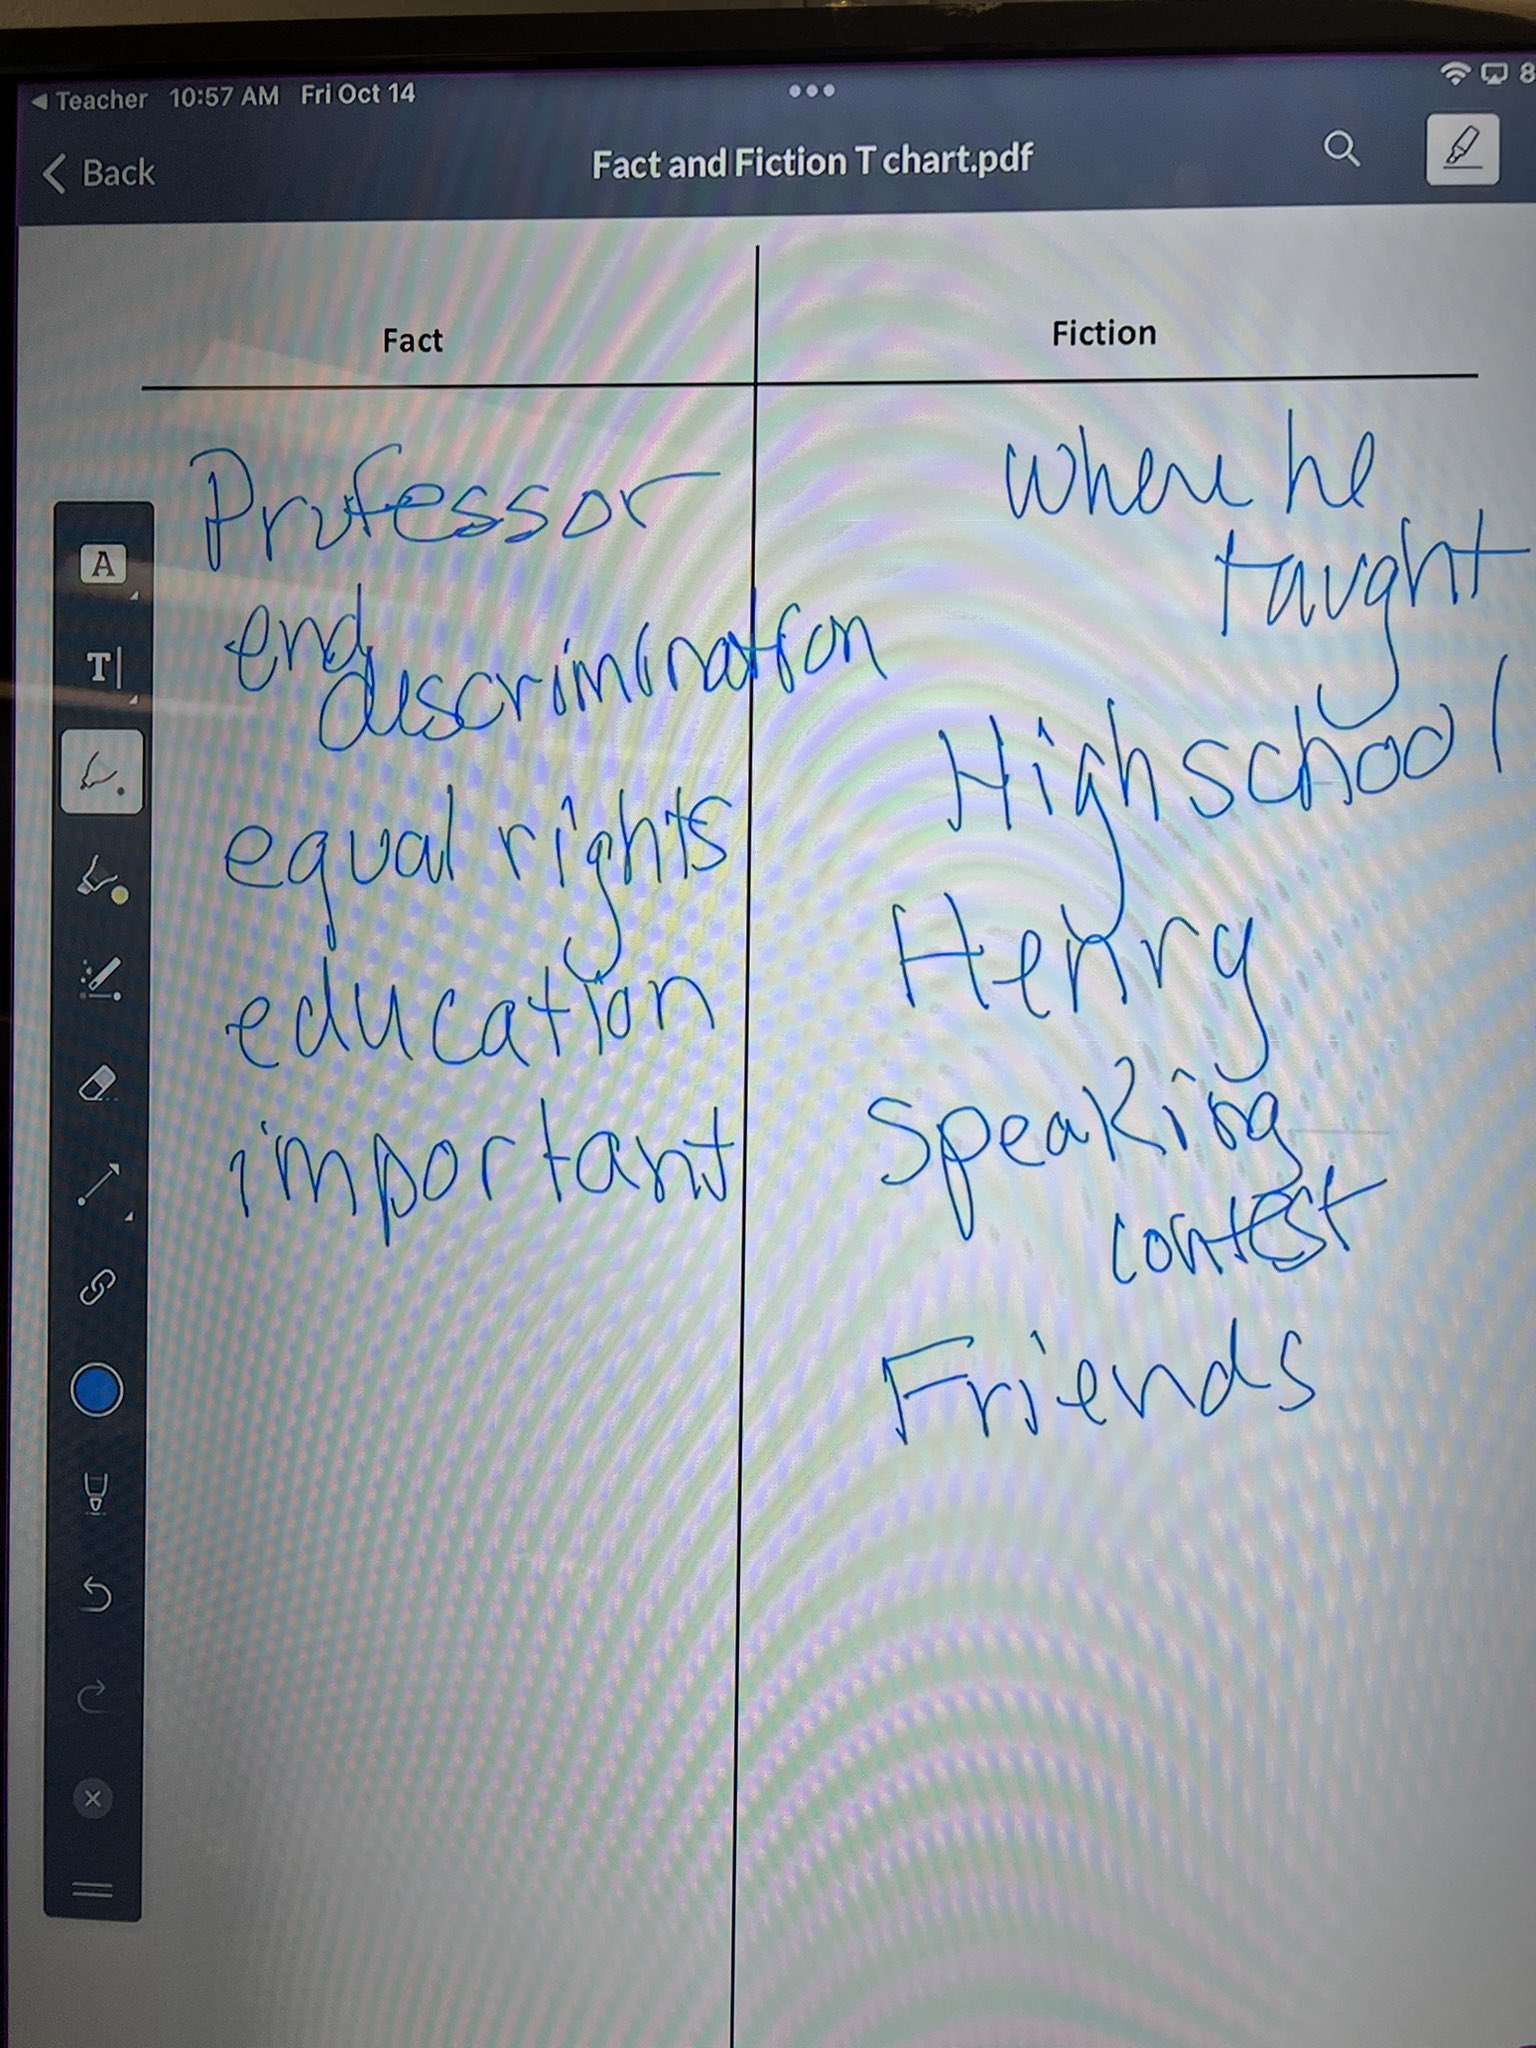 Teacher 10:57 AM Fri Oct 14
Back
Fact and Fiction T chart.pdf
Fact
Professor
end
discrimination
equal rights
education
important
Fiction
where he
taught
High school
Henry
Speaking
contest
Friends
A
T
8